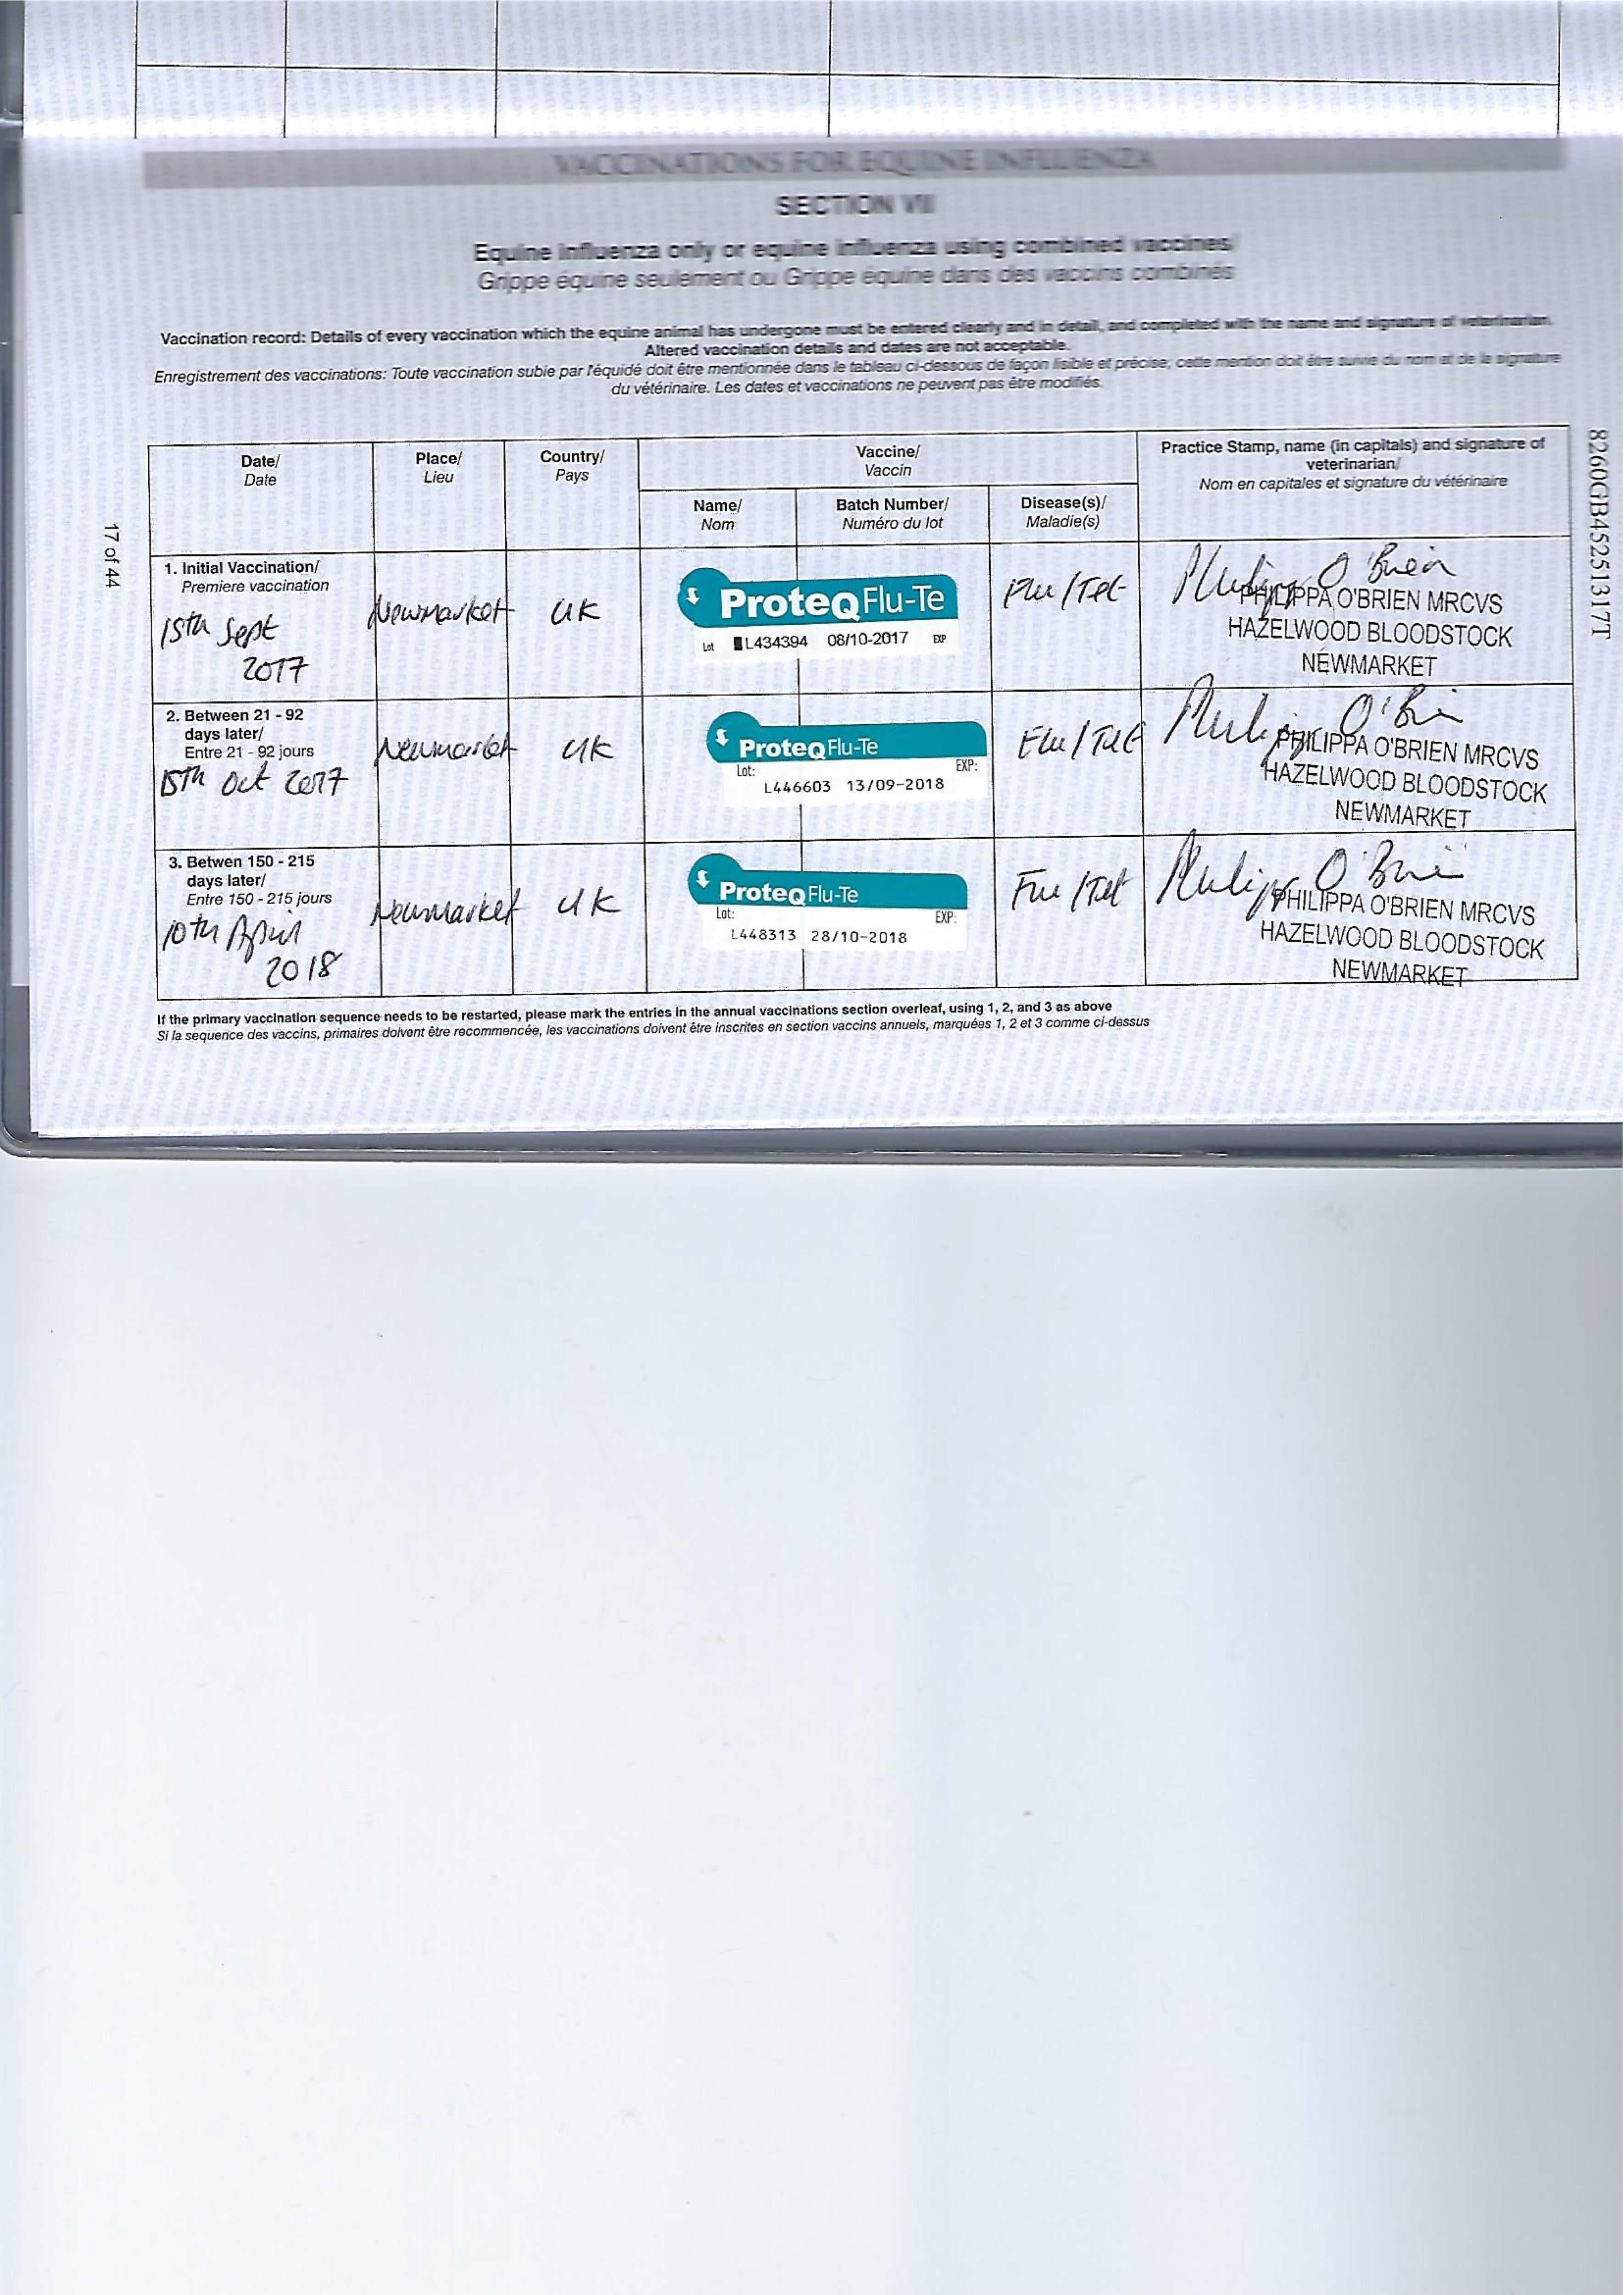 VACCINATIONS FOR EQUINE INFLUENZA
SECTION VII
Equine influenza only or equine influenza using combined vaccines/
Grippe équine seulement ou Grippe équine dans des vaccins combinés
Vaccination record: Details of every vaccination which the equine animal has undergone must be entered clearly and in detail, and completed with the name and signature of veterinarian.
Altered vaccination details and dates are not acceptable.
Enregistrement des vaccinations: Toute vaccination subie par l'équidé doit être mentionnée dans le tableau ci-dessous de façon lisible et précise; cette mention doit être suivie du nom et de la signature
du vétérinaire. Les dates et vaccinations ne peuvent pas être modifiés.
8260GB45251317T
17 of 44
Date/
Date
Place/
Lieu
Country/
Pays
Vaccine/
Vaccin
Practice Stamp, name (in capitals) and signature of
veterinarian/
Nom en capitales et signature du vétérinaire
Name/
Nom
Batch Number/
Numéro du lot
Disease(s)/
Maladie(s)
1. Initial Vaccination/
Premiere vaccination
15th Sept
2017
Newmarket
UK
ProteqFlu-Te
Lot L434394 08/10-2017 EXP
Flu/Tet
Philippa O'Brien
PHILIPPA O'BRIEN MRCVS
HAZELWOOD BLOODSTOCK
NEWMARKET
2. Between 21 - 92
days later/
Entre 21 - 92 jours
15th Oct 2017
Newmarket
UK
ProteqFlu-Te
Lot: EXP:
L446603 13/09-2018
Flu/Tet
Philippa O'Brien
PHILIPPA O'BRIEN MRCVS
HAZELWOOD BLOODSTOCK
NEWMARKET
3. Betwen 150 - 215
days later/
Entre 150 - 215 jours
10th April
2018
Newmarket
UK
ProteqFlu-Te
Lot: EXP:
L448313 28/10-2018
Flu/Tet
Philippa O'Brien
PHILIPPA O'BRIEN MRCVS
HAZELWOOD BLOODSTOCK
NEWMARKET
If the primary vaccination sequence needs to be restarted, please mark the entries in the annual vaccinations section overleaf, using 1, 2, and 3 as above
Si la sequence des vaccins, primaires doivent être recommencée, les vaccinations doivent être inscrites en section vaccins annuels, marquées 1, 2 et 3 comme ci-dessus